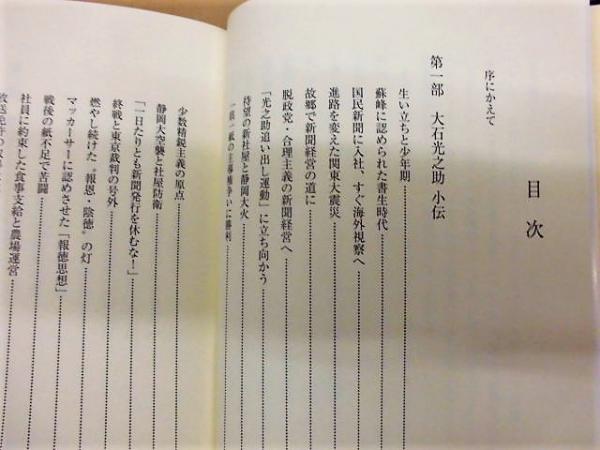 目次
序にかえて
第一部　大石光之助 小伝
生い立ちと少年期
蘇峰に認められた書生時代
国民新聞に入社、すぐ海外視察へ
進路を変えた関東大震災
故郷で新聞経営の道に
脱政党・合理主義の新聞経営へ
「光之助追い出し運動」に立ち向かう
待望の新社屋と静岡大火
一県一紙の主導権争いに勝利
少数精鋭主義の原点
静岡大空襲と社屋防衛
「一日たりとも新聞発行を休むな！」
終戦と東京裁判の号外
燃やし続けた〝報恩・陰徳〟の灯
マッカーサーに認めさせた「報徳思想」
戦後の紙不足で苦闘
社員に約束した食事支給と農場運営